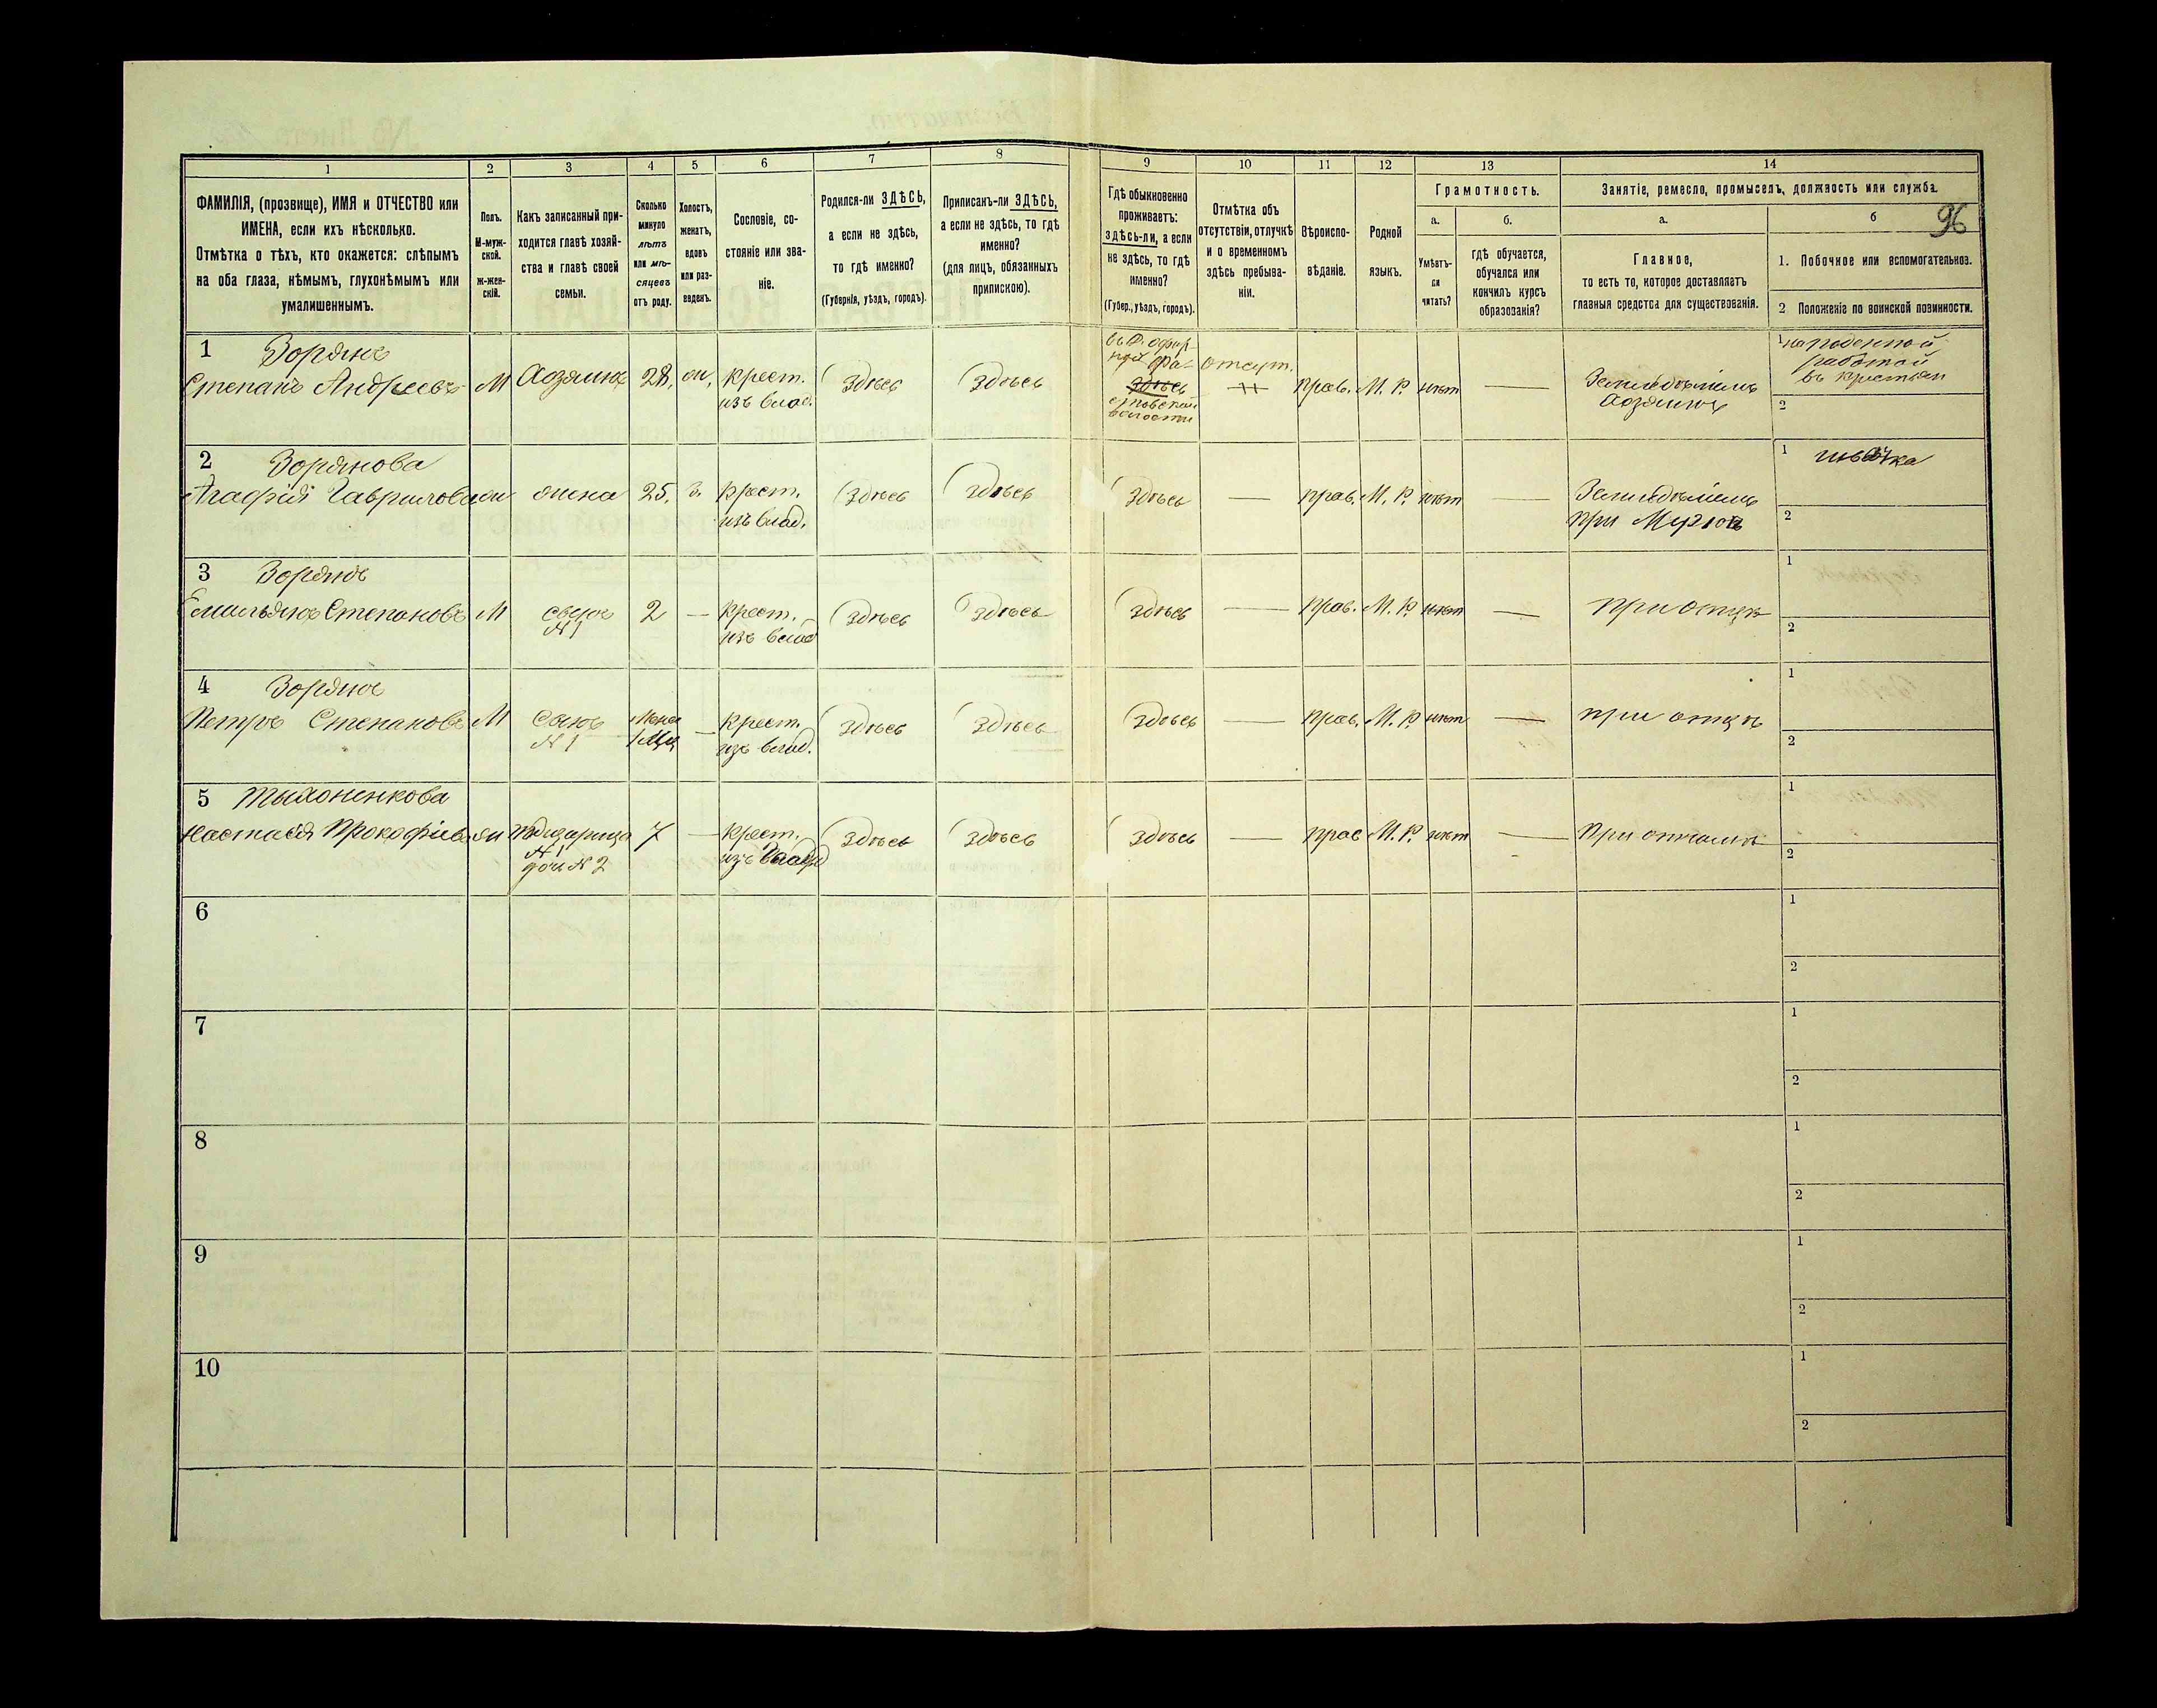 1 2 3 4 5 6 7 8 9 10 11 12 13 14
ФАМИЛІЯ, (прозвище), ИМЯ и ОТЧЕСТВО или
ИМЕНА, если ихъ нѣсколько.
Отмѣтка о тѣхъ, кто окажется: слѣпымъ
на оба глаза, нѣмымъ, глухонѣмымъ или
умалишеннымъ.
Полъ.
М-муж-
ской.
ж-жен-
скій.
Какъ записанный при-
ходится главѣ хозяй-
ства и главѣ своей
семьи.
Сколько
минуло
лѣтъ
или мѣ-
сяцевъ
отъ роду.
Холостъ,
женатъ,
вдовъ
или раз-
веденъ.
Сословіе, со-
стояніе или зва-
ніе.
Родился-ли ЗДѢСЬ,
а если не здѣсь,
то гдѣ именно?
(Губернія, уѣздъ, городъ).
Приписанъ-ли ЗДѢСЬ,
а если не здѣсь, то гдѣ
именно?
(для лицъ, обязанныхъ
припискою).
Гдѣ обыкновенно
проживаетъ:
здѣсь-ли, а если
не здѣсь, то гдѣ
именно?
(Губер., уѣздъ, городъ).
Отмѣтка объ
отсутствіи, отлучкѣ
и о временномъ
здѣсь пребыва-
ніи.
Вѣроиспо-
вѣданіе.
Родной
языкъ.
Грамотность.
а. б.
Умѣетъ-
ли
читать?
гдѣ обучается,
обучался или
кончилъ курсъ
образованія?
Занятіе, ремесло, промыселъ, должность или служба.
а. б
96
Главное,
то есть то, которое доставляетъ
главныя средства для существованія.
1. Побочное или вспомогательное.
2 Положеніе по воинской повинности.
1 Зорянъ
Степанъ Андреевъ М Хозяинъ 28, ж, крест.
изъ влад. здѣсь здѣсь
здѣсь
волости
отсут. прав. М. Р. нѣт — Земледѣлецъ
Хозяинъ
1 поденной
работой
въ крестьян
2
2 Зорянова
Агафія Гаврилова ж жена 25. з. крест.
изъ влад. здѣсь здѣсь здѣсь — прав. М. Р. нѣт — Земледѣлецъ
при Мужѣ
1 швачка
2
3 Зорянъ
Емильянъ Степановъ М сынъ
N 1 2 — крест.
изъ влад здѣсь здѣсь здѣсь — прав. М. Р. нѣт — при отцѣ
1
2
4 Зорянъ
Петръ Степановъ М Сынъ
N 1 Менѣ
1 Мца — крест.
изъ влад. здѣсь здѣсь здѣсь — прав. М. Р. нѣт — при отцѣ
1
2
5 Тыхоненкова
Настасія Прокофіева ж Падчерица
N 1
доч N 2 7 — крест.
изъ влад здѣсь здѣсь здѣсь — прав М. Р. нѣт — При отчимѣ
1
2
6
1
2
7
1
2
8
1
2
9
1
2
10
1
2